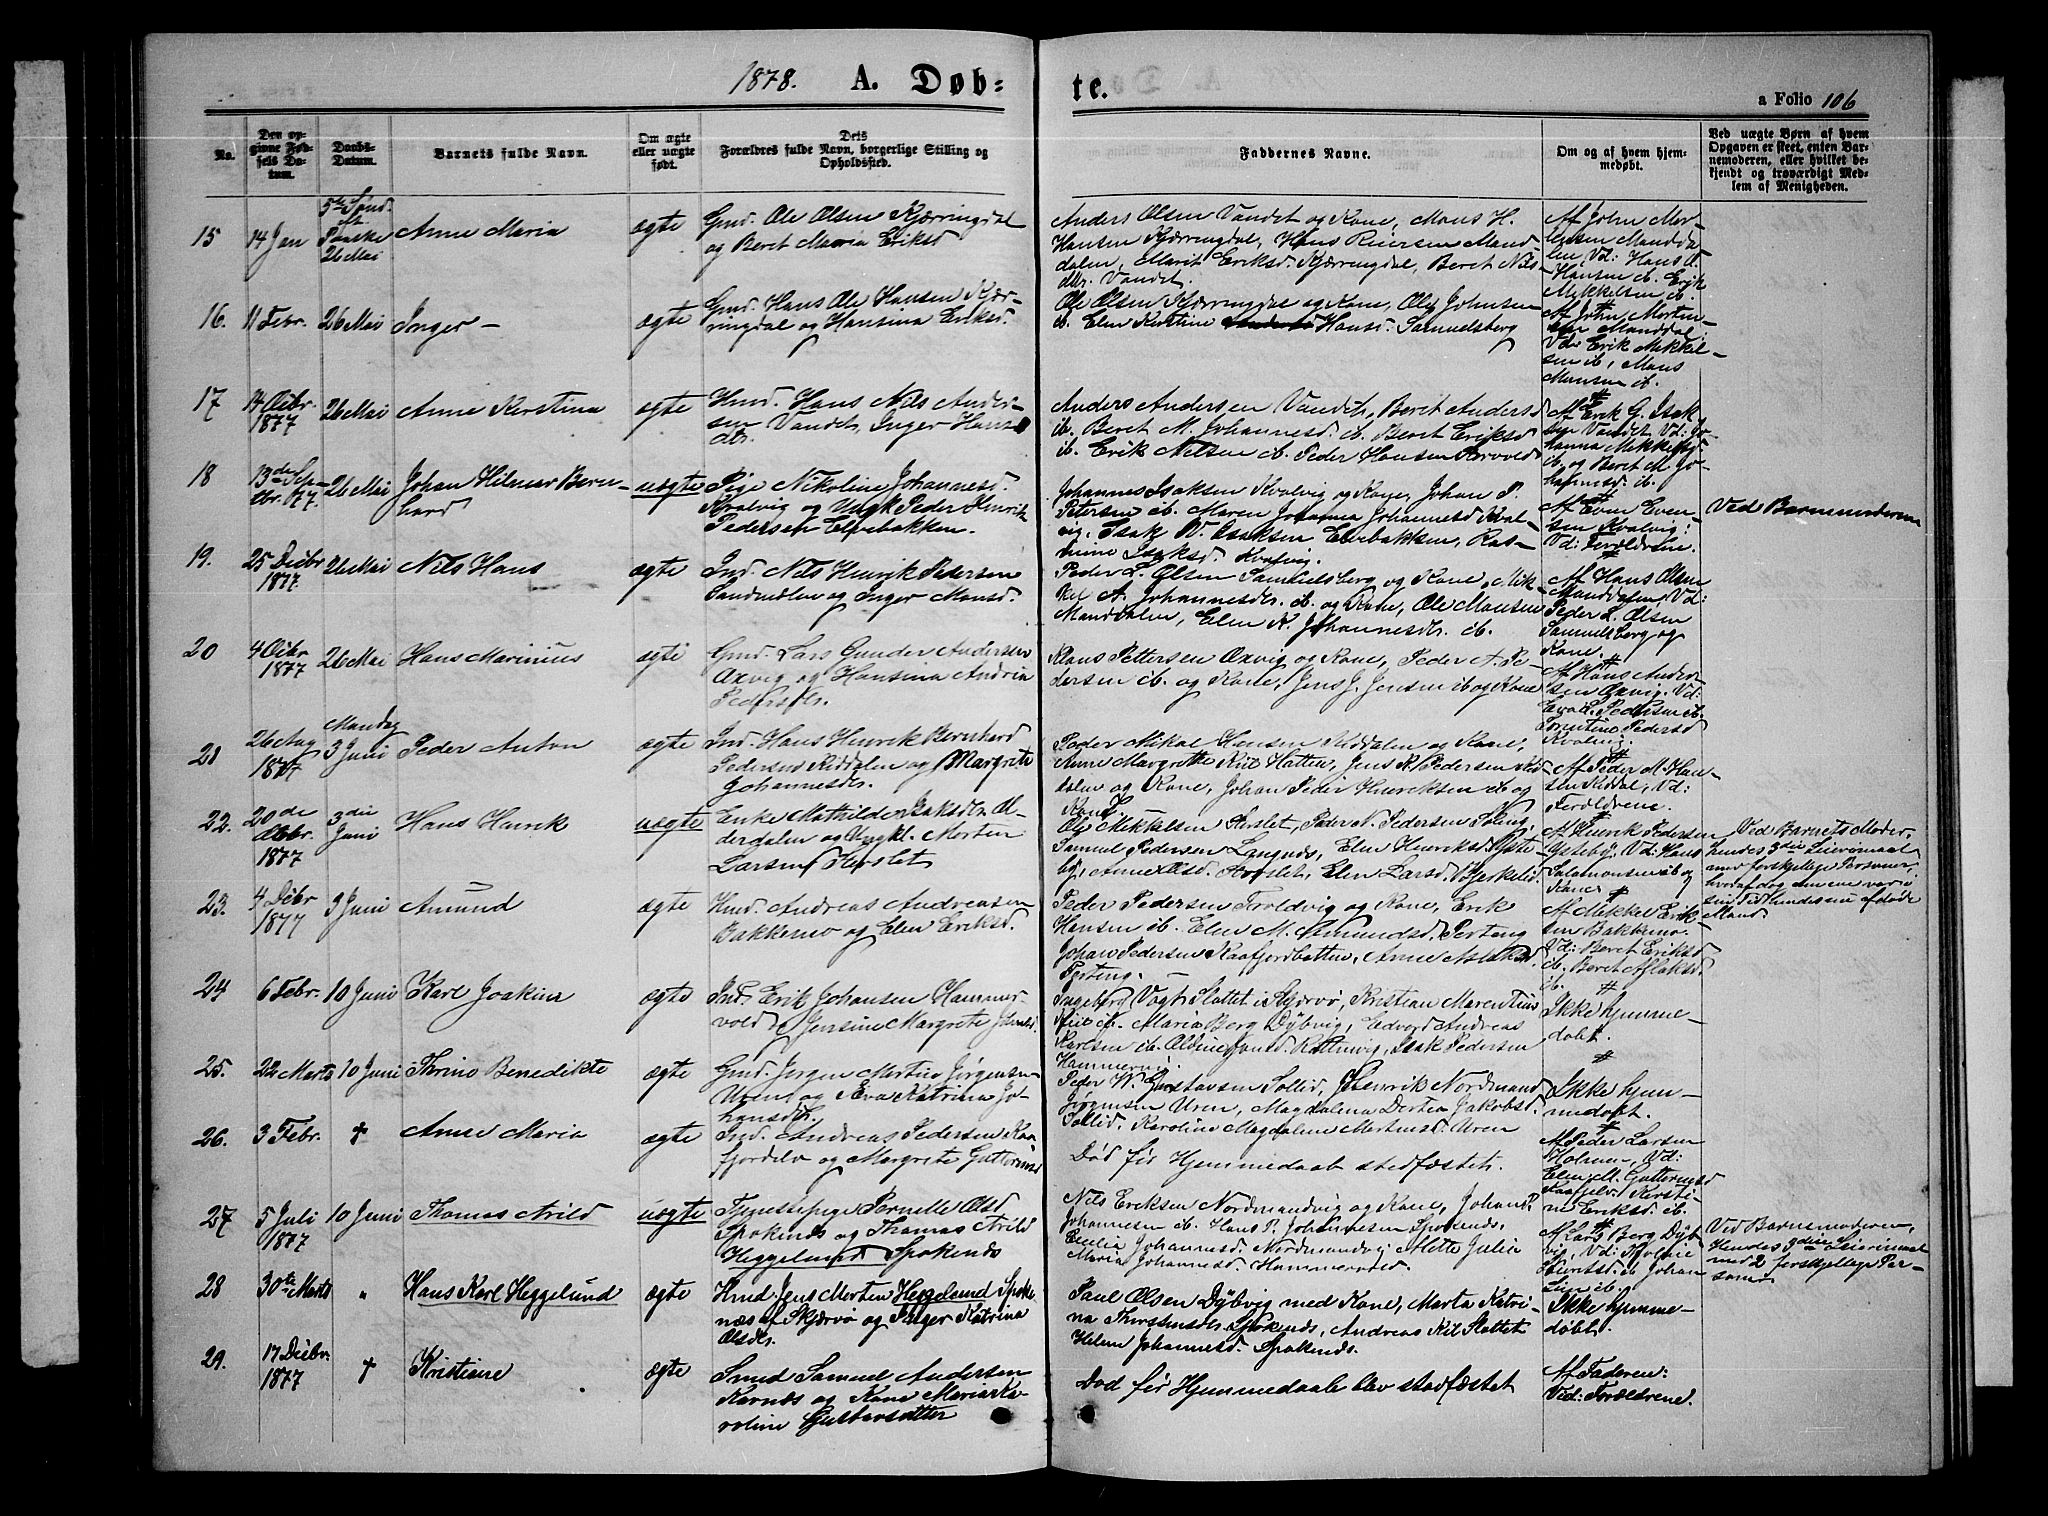 1878. A. Døb= te.
a Folio 106
No.
Den op-
givne Fød-
sels Da-
tum.
Daabs-
Datum.
Barnets fulde Navn.
Om ægte
eller uægte
født.
Dets
Forældres fulde Navn, borgerlige Stilling og
Opholdssted.
Faddernes Navne.
Om og af hvem hjem-
medøbt.
Ved uægte Børn af hvem
Opgaven er skeet, enten Bar-
nemoderen, eller hvilket be-
kjendt og troværdigt Med-
lem af Menigheden.
15 14 Jan 5te Sønd. Paaske 26 Mai Anne Maria ægte Gmd. Ole Olsen Kjærringdal
og Beret Maria Eriksd
Anders Olsen Vandet og Kone, Mons H.
Hansen Kjærringdal, Hans Mand
dalen, Marit Eriksd. Kjærringdal, Beret Nils-
dtr. Vandet.
Af John Mor-
tensen Mandda
len, Vd: Hans O.
Hansen ib. Erik
Mikkelsen ib.
16. 11 Febr. 26 Mai Inger – ægte Gmd. Hans Ole Hansen Kjær-
ringdal og Hansina Eriksd.
Ole Olsen Kjærringdal og Kone, Ole Johnsen
ib. Elen Kirstine Hansd. Samuelsberg
Af John Morten-
sen Manddal
Vd: Erik Mikkel-
sen ib, Mons
Monsen ib.
17 14 Octbr. 1877 26 Mai Anne Kirstina ægte Hmd. Hans Nils Ander-
sen Vandet, Inger Hans
dtr.
Anders Andersen Vandet, Beret Andersd
ib. Beret M. Johannesd. ib. Beret Eriksd
ib. Erik Nilsen ib. Peder Hansen
Af Erik G. Isak
sen Vandet Vd: Jo-
hanna Mikkelsd
ib. og Beret M. Jo-
hannesd. ib.
18 13de Sep-
tbr. 77. 26 Mai Johan Hilmar Bern-
hard uægte Pige Nikoline Johannesd.
Kvalvig og Ungk. Peder Henrik
Pedersen Elvebakken.
Johannes Isaksen Kvalvig og Kone, Johan P.
Petersen ib. Maren Johanna Johannesd Kval-
vig, Isak W. Isaksen Elvebakken, Ras-
mine Isaksd. Kvalvig.
Af Even Even-
sen Kvalvig:
Vd: Forældrene.
Ved Barnemoderen
19. 25 Decbr 1877. 26 Mai Nils Hans ægte Ind. Nils Henrik Pedersen
Sandmælen og Inger Monsd.
Peder L. Olsen Samuelsberg og Kone, Mik-
kel A. Johannesdr. ib. og Kone, Ole Monsen
Manddalen, Elen K. Johannesdr. ib.
Af Hans Olsen
Manddalen, Vd:
Peder L. Olsen
Samuelsberg og
Kone.
20 4 Octbr 1877 26 Mai Hans Marinius ægte Gmd. Lars Gunder Andersen
Oxvig og Hansina Andria
Pedersdr.
Klaus Pettersen Oxvig og Kone, Peder A. Pe-
dersen ib. og Kone, Jens J. Jensen ib og Kone
Af Hans Ander-
sen Oxvig. Vd:
Pedersen ib.
Pedersd
Kvalvig.
21 26 Aug 1877 Mandag 3 Juni Peder Anton ægte Ind. Hans Henrik Bernhard
Pedersen Kiddalen og Margrete
Johannesdr.
Peder Mikal Hansen Kiddalen og Kone,
Anne Margrethe Kiil Hatten, Jens K. Pedersen Kid-
dalen og Kone, Johan Peder Henriksen ib og
Kone.
Af Peder M. Han-
sen Kiddal, Vd:
Forældrene.
22. 20de Octbr. 1877 3die Juni Hans Henrik uægte Enke Mathilde Isaksdr. Ol-
derdalen og Ungkl. Morten
Larsen Storslet
Ole Mikkelsen Storslet, Peder N. Pedersen
Samuel Pedersen Langnæs, Elen Henriksd. Yste-
by, Anne Olsd. Storslet, Elen Larsd. Bjerkelid.
Af Henrik Pedersen
Ysteby. Vd: Hans
Salamonsen ib og
Kone
Ved Barnets Moder,
hendes 3die Leiermaal
med forskjellige Personer,
hvoraf dog den ene
hendes nu afdøde
Mand
23. 4 Decbr 1877 3 Juni Amund ægte Hmd. Andreas Andreasen
Bakkemo og Elen Eriksd.
Peder Pedersen Troldvig og Kone, Erik
Hansen ib. Elen M. Amundsd. Perteng
Johan Pedersen Kaafjordbotten, Anne Aslaksd.
Perteng.
Af Mikkel Erik-
sen Bakkemo.
Vd: Beret Eriksd
ib. Beret Aslaksd.
ib.
24 6 Febr. 10 Juni Karl Joakim ægte Ind. Erik Johansen Hammer-
vold og Jensine Margrete Johansd.
Ingeborg Vogt, Slottet i Skjærvø, Kristian Marentius
Kiil ib. Maria Berg Dybvig, Edvard Andreas
Karlsen ib. Oldine Jonsd. Rotsunvig, Isak Pedersen
Hammervig.
Ikke hjemme-
døbt.
25. 22 Marts 10 Juni Thrine Benedikte ægte Gmd. Jørgen Martin Jørgensen
Uren og Eva Katrina Jo-
hansdtr.
Peder W. Gustavsen Sollid, Henrik Nordmand
Jørgensen Uren, Magdalena Dortea Jakobsd.
Sollid. Karoline Magdalene Mortensd. Uren
Ikke hjem-
medøbt.
26. 3 Febr. † Anne Maria ægte Ind. Andreas Pedersen Kaa-
fjordelv og Margrete Guttormsd
Død før Hjemmedaab stedfæstet.
Af Peder Larsen
Holmen, Vd:
Elen M. Guttormsd
Kaafjelv. Kirsti-
ne Eriksd. ib.
27 5 Juli 1877 10 Juni Thomas Arild uægte Tjenestepige Pernelle Olsd
Spokenæs og Thomas Arild
Heggelund Spokenæs
Nils Eriksen Nordmandvig og Kone, Johan P.
Johannesen ib. Hans P. Johannesen Spokenæs,
Cecilia Johannesd. Nordmandvig Mette Julie
Maria Johannesd. Hammervold.
Af Lars Berg Dyb-
vig, Vd:
ib Johan
ib.
Ved Barnemoderen,
Hendes 3die Leiermaal
med 2 forskjellige Per-
soner
28 30te Marts „ Hans Karl Heggelund ægte Hmd. Jens Morten Heggelund Spoke
næs af Skjærvø og Inger Katrina
Olsdr.
Paul Olsen Dybvig med Kone, Marta Katri-
na Thorstensdtr. Spokenæs, Andreas Kiil Slottet
Helene Johannesd. Spokenæs.
Ikke hjemme-
døbt.
29. 17 Decbr. 1877 † Kristiane ægte Smed Samuel Andersen
Karnæs og Kone Maria Ka-
roline Gustavsatter
Død før Hjemmedaab blev stadfæstet
Af Faderen:
Vd: Forældrene.